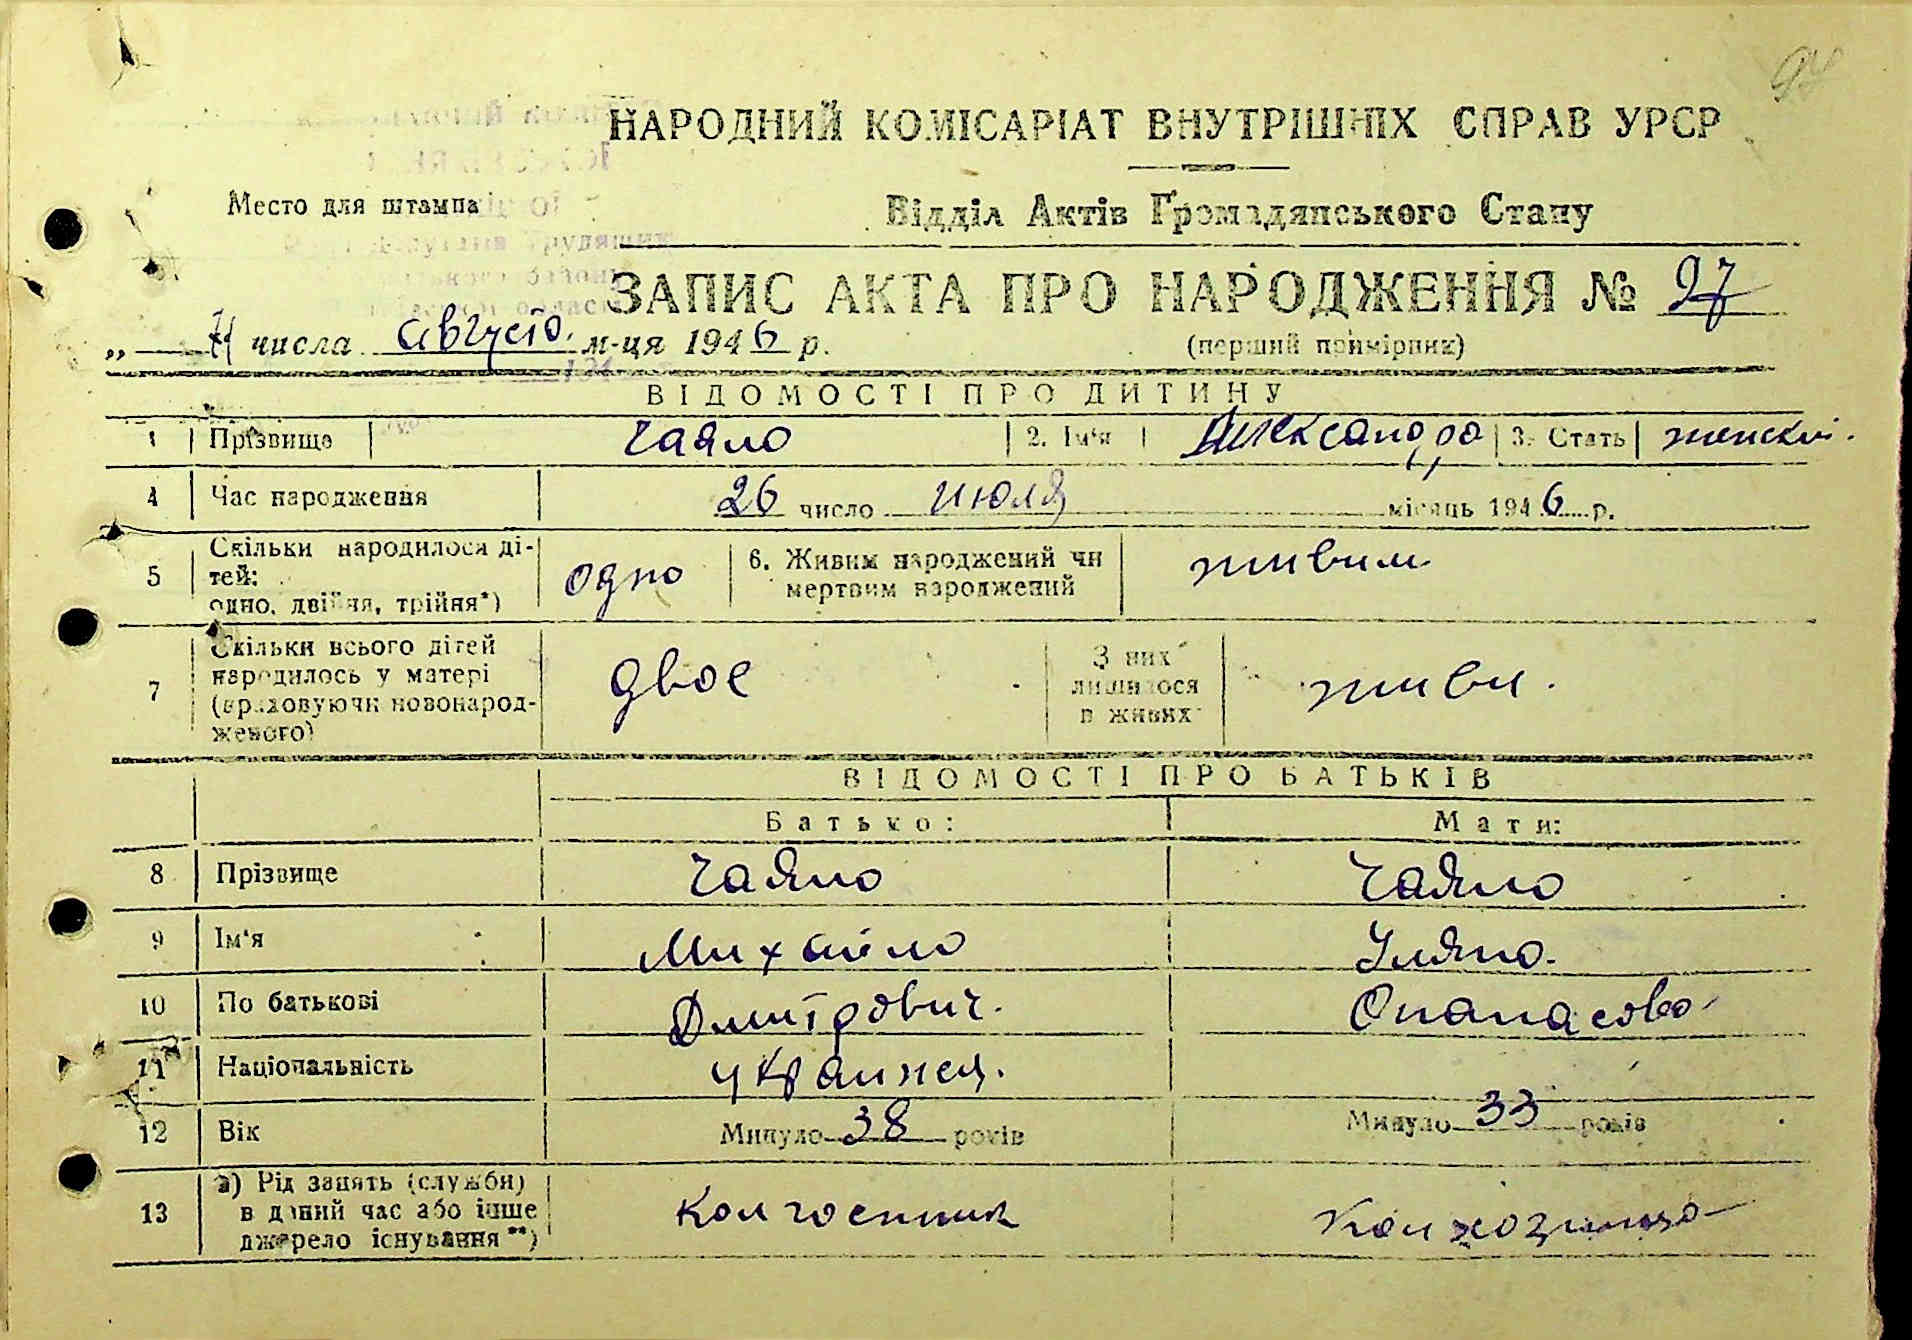 97
НАРОДНИЙ КОМІСАРІАТ ВНУТРІШНІХ СПРАВ УРСР
Место для штампа
Відділ Актів Громадянського Стану
ЗАПИС АКТА ПРО НАРОДЖЕННЯ № 97
„ числа августа м-ця 1946 р.
(перший примірник)
ВІДОМОСТІ ПРО ДИТИНУ
1 Прізвище Чаяло 2. Ім'я Александра 3. Стать женский.
4 Час народження 26 число июля місяць 1946 р.
5 Скільки народилося ді-
тей:
одно, двійня, трійня*)
одно
6. Живим народжений чи
мертвим народжений
живим
7 Скільки всього дітей
народилось у матері
(враховуючи новонарод-
женого)
двое
З них
лишилося
в живих
живи.
ВІДОМОСТІ ПРО БАТЬКІВ
Батько: Мати:
8 Прізвище Чаяло Чаяло
9 Ім'я Михайло Уляна.
10 По батькові Дмитрович. Опанасовна
11 Національність украинец.
12 Вік Минуло 38 років Минуло 33 років
13 а) Рід занять (служби)
в даний час або інше
джерело існування **)
Колгоспник Колхозница